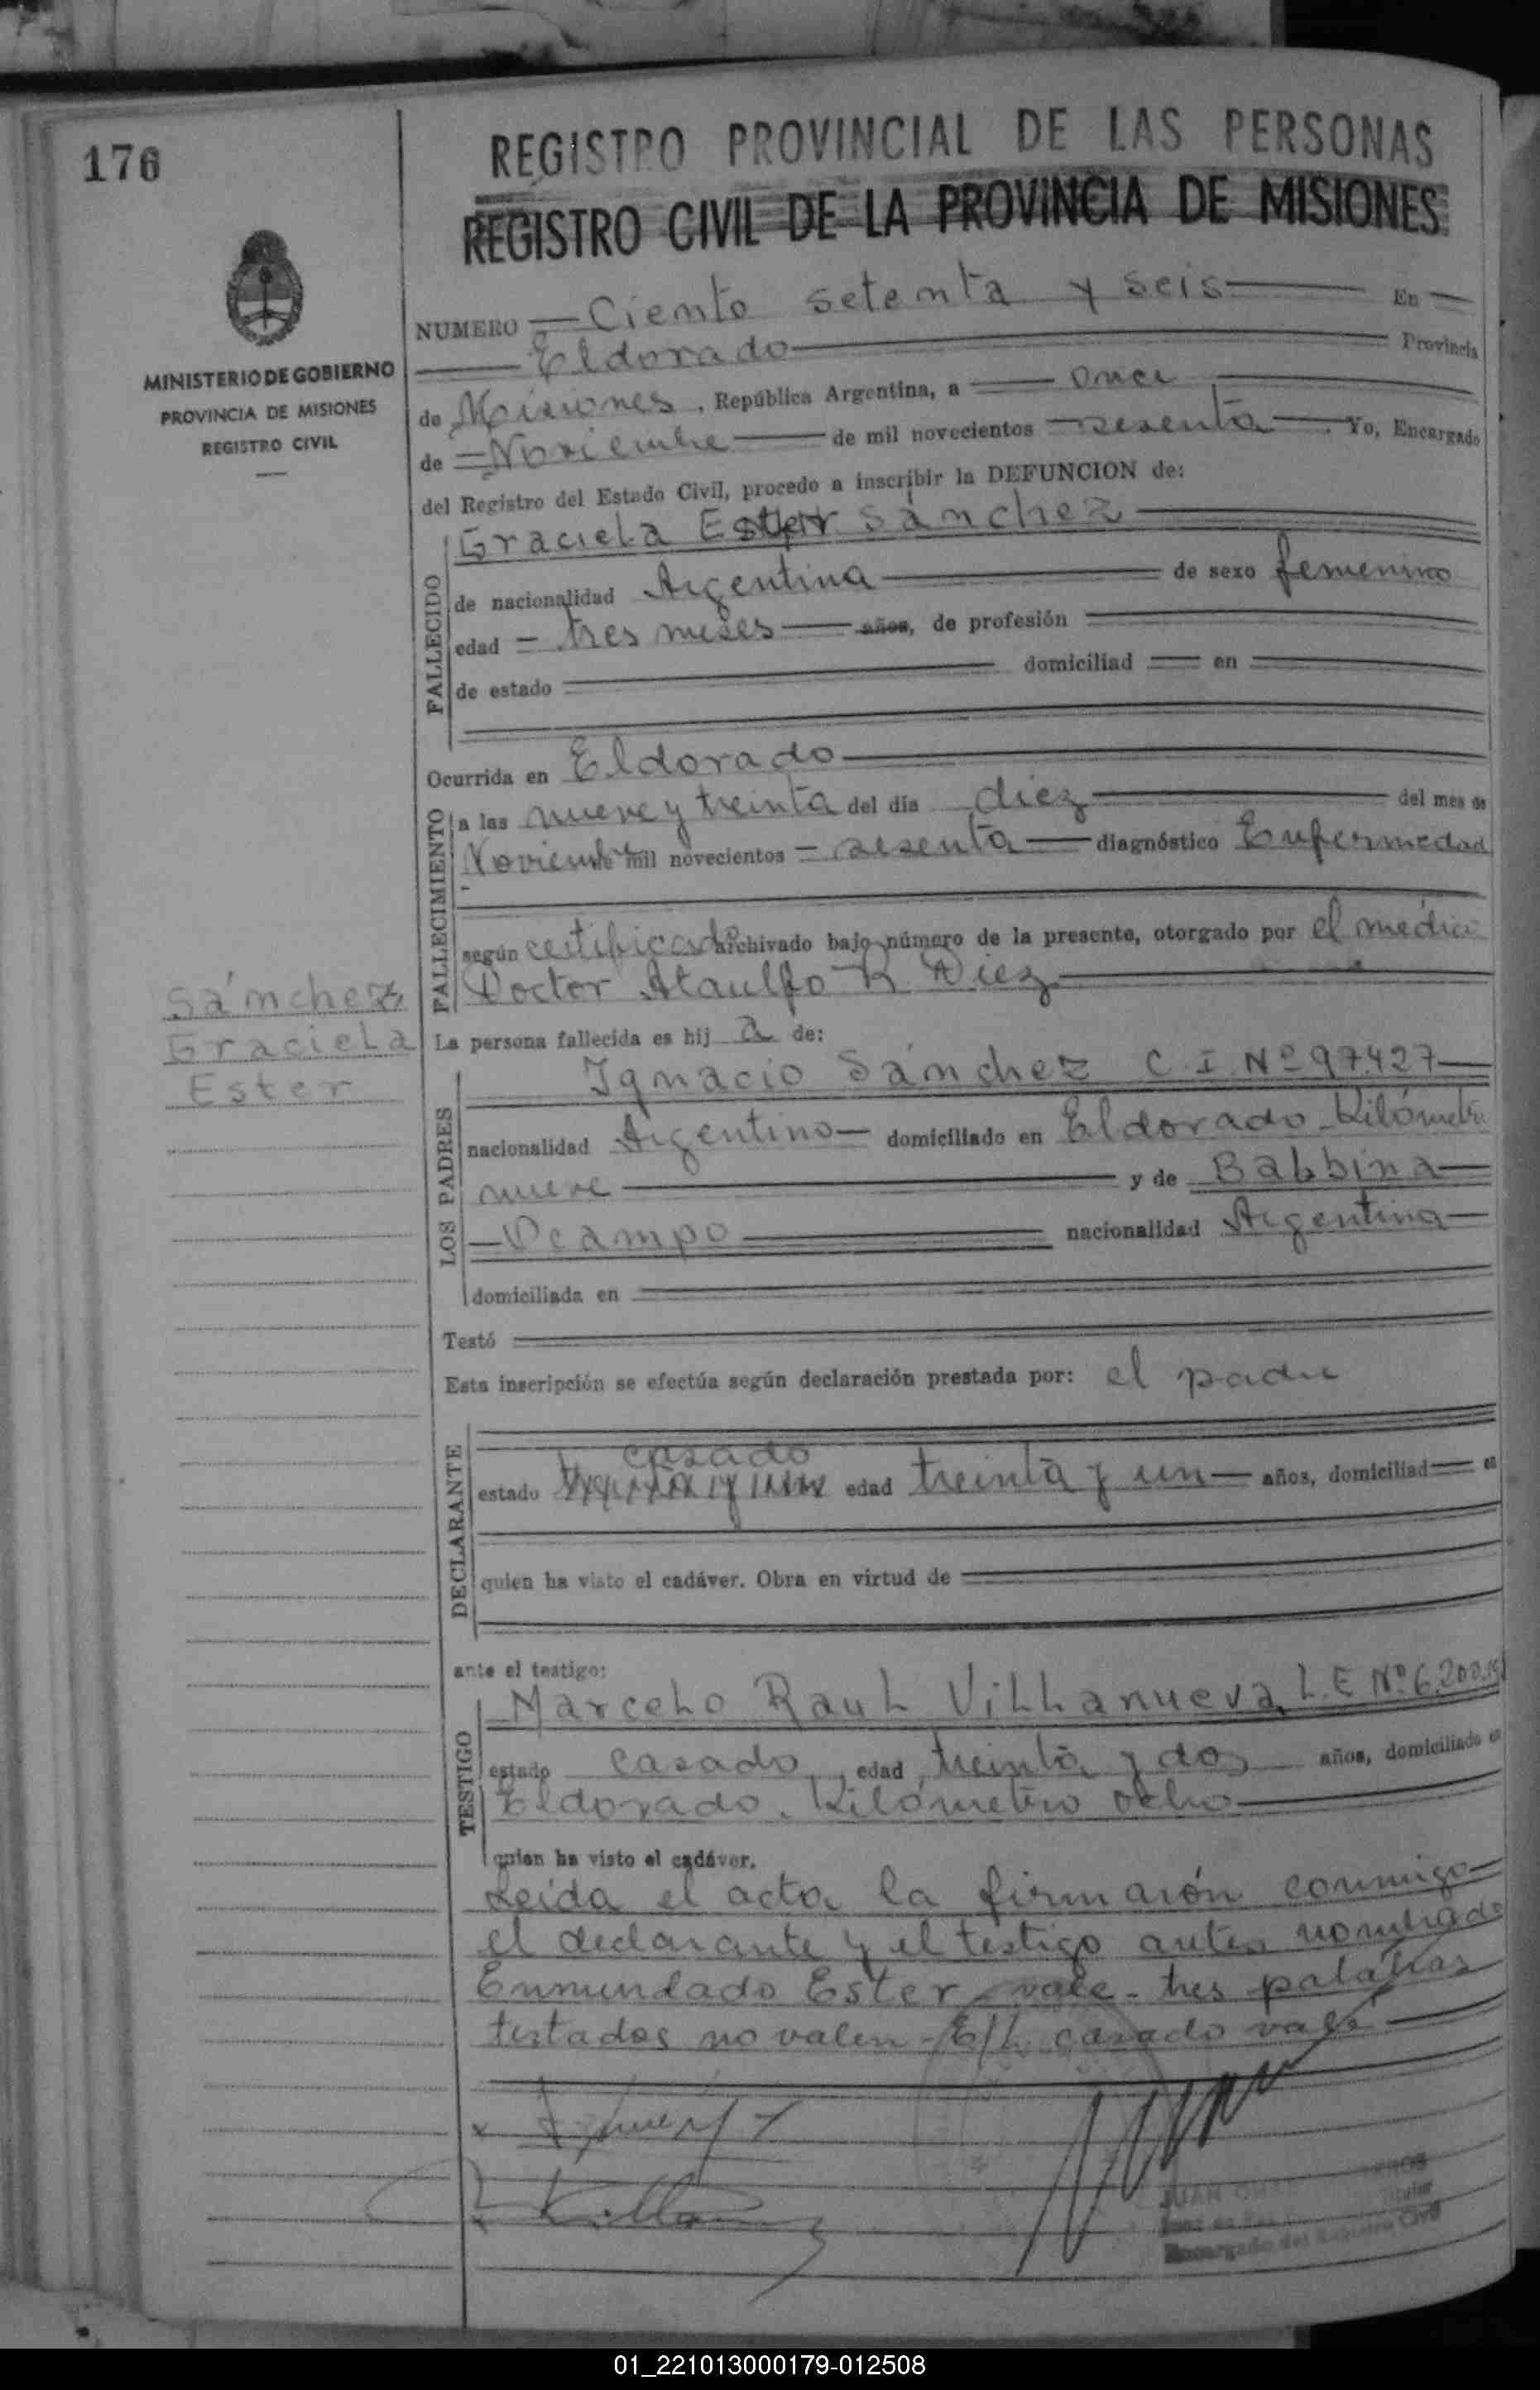 176
REGISTRO PROVINCIAL DE LAS PERSONAS
REGISTRO CIVIL DE LA PROVINCIA DE MISIONES
MINISTERIO DE GOBIERNO
PROVINCIA DE MISIONES
REGISTRO CIVIL
NUMERO Ciento setenta y seis En
Eldorado Provincia
de Misiones, República Argentina, a once
de Noviembre de mil novecientos sesenta. Yo, Encargado
del Registro del Estado Civil, procedo a inscribir la DEFUNCION de:
FALLECIDO
Graciela Ester Sánchez
de nacionalidad Argentina de sexo femenino
edad tres meses años, de profesión
de estado domiciliad en
Ocurrida en Eldorado
FALLECIMIENTO
a las nueve y treinta del día diez del mes de
Noviembre mil novecientos sesenta diagnóstico Enfermedad
según certificado archivado bajo número de la presente, otorgado por el médico
Doctor Ataulfo R. Diez
Sánchez
Graciela
Ester
La persona fallecida es hij a de:
LOS PADRES
Ignacio Sánchez C. I. Nº 97.427
nacionalidad Argentino domiciliado en Eldorado Kilómetro
nueve y de Balbina
Ocampo nacionalidad Argentina
domiciliada en
Testó
Esta inscripción se efectúa según declaración prestada por: el padre
DECLARANTE
casado
estado edad treinta y un años, domiciliad en
quien ha visto el cadáver. Obra en virtud de
ante el testigo:
TESTIGO
Marcelo Raul Villanueva L.E Nº 6.200.
estado casado edad treinta y dos años, domiciliado en
Eldorado. Kilómetro ocho
quien ha visto el cadáver.
Leída el acta la firmarón conmigo
el declarante y el testigo antes nombrado
Enmundado Ester vale - tres palabras
testados no valen - E/L. casado vale
JUAN
Encargado del Registro Civil
01_221013000179-012508